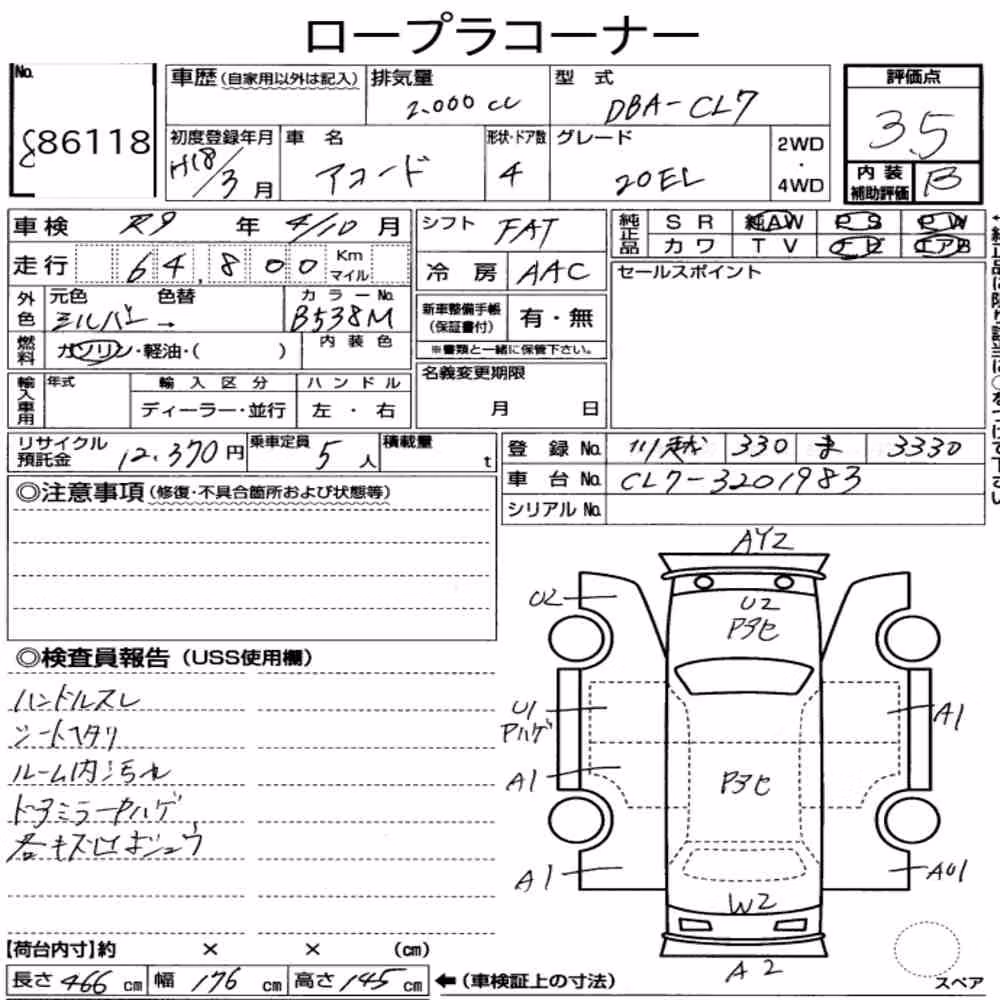 ロープラコーナー
No.
86118
車歴 (自家用以外は記入)
排気量
2.000 cc
型 式
DBA-CL7
評価点
3.5
初度登録年月
H18/3 月
車 名
アコード
形状・ドア数
4
グレード
20EL
2WD
・
4WD
内装
補助評価
B
車検 R9 年 4/10 月
シフト FAT
純正品
S R 純AW P S P W
カワ T V エアB
走行 64,800 Km
マイル
冷 房 AAC
セールスポイント
外色
元色 色替
シルバー →
カラーNo.
B538M
新車整備手帳
(保証書付)
有・無
※書類と一緒に保管下さい。
燃料
ガソリン・軽油・( )
内 装 色
輸入車用
年式
輸 入 区 分
ハ ン ド ル
ディーラー・並行
左 ・ 右
名義変更期限
月 日
リサイクル
預託金
12,370 円
乗車定員
5 人
積載量
t
登 録 No. 川越 330 ま 3330
車 台 No. CL7-3201983
シリアル No.
◎注意事項 (修復・不具合箇所および状態等)
◎検査員報告 (USS使用欄)
ハンドルスレ
シートヘタリ
ルーム内汚れ
ドアミラーPハゲ
各キズ凹
AY2
U2
U2
Pヌセ
U1
Pハゲ
A1
A1
Pヌセ
A1
A01
W2
A2
スペア
【荷台内寸】約 × × (cm)
長さ 466 cm 幅 176 cm 高さ 145 cm
← (車検証上の寸法)